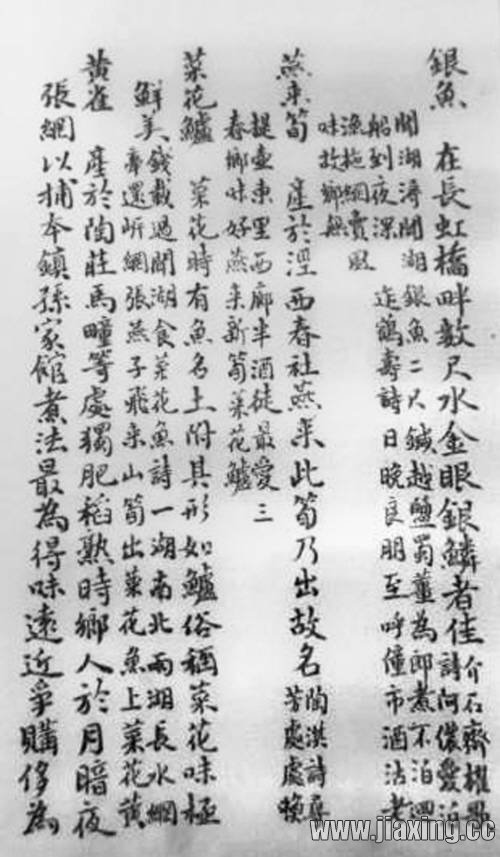 銀魚 在長虹橋畔數尺水金眼銀鱗者佳 介石齋櫂歌
詩阿儂愛泊
聞湖濱聞湖銀魚二尺鍼越鹽蜀薑為郎煮不泊
船到夜深 迮鶴壽詩日晚良朋至呼僮市酒沽老
漁拖網賣風
味故鄉無
燕來筍 產於涇西春社燕來此筍乃出故名 陶淇詩尋
芳處處晚
提壺東里西廊半酒徒最愛三
春鄉味好燕來新筍菜花鱸
菜花鱸 菜花時有魚名土附其形如鱸俗稱菜花味極
鮮美 錢載過聞湖食菜花魚詩一湖南北兩湖長水網
牽還岍網張燕子飛來山筍出菜花魚上菜花黃
黃雀 產於陶莊馬疃等處獨肥稻熟時鄉人於月暗夜
張網以捕本鎮孫家館煮法最為得味遠近爭購侈為
www.jiaxing.cc